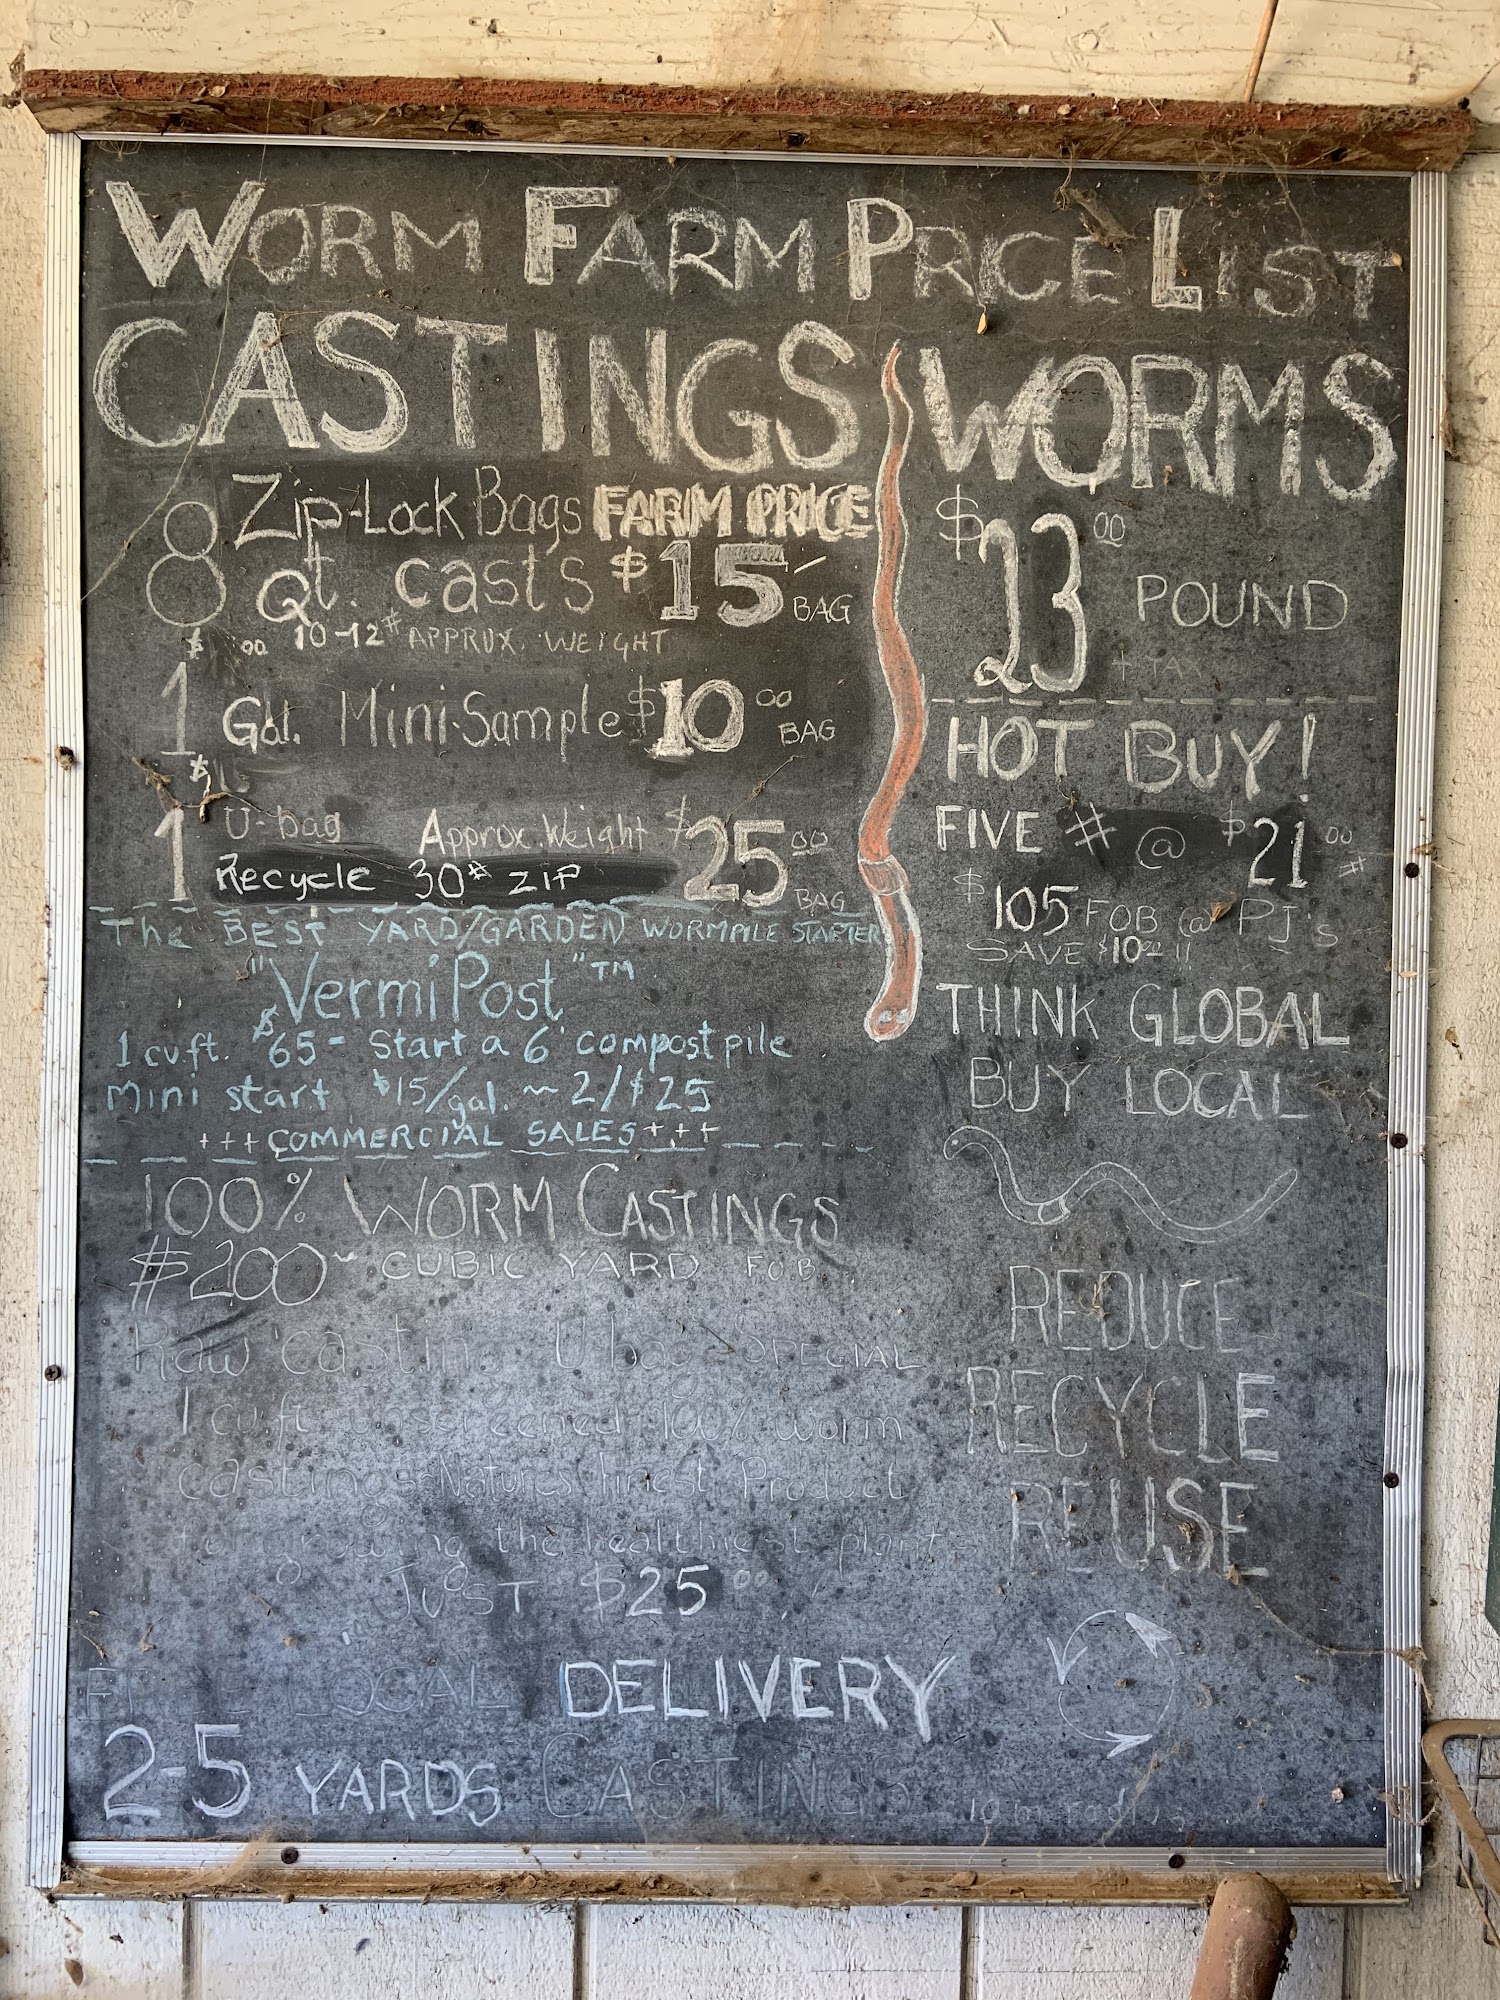 WORM FARM PRICE LIST
CASTINGS
8 Zip-Lock Bags FARM PRICE
Qt. casts $15 BAG
$ 00 10-12# APPROX. WEIGHT
1 Gal. Mini-Sample $10 00 BAG
$
1 U-bag Approx. Weight $25 00
Recycle 30# ZIP BAG
The BEST YARD/GARDEN WORMPILE STARTER
"VermiPost"™
1 cu ft. $65- Start a 6' compost pile
Mini start $15/gal. ~ 2/$25
+++COMMERCIAL SALES+++
100% WORM CASTINGS
$200~ CUBIC YARD F.O.B.
Raw Casting U bag SPECIAL
1 cu.ft. unscreened 100% worm
castings-Natures Finest Product
for growing the healthiest plant
JUST $25 00
LOCAL DELIVERY
2-5 YARDS CASTINGS
WORMS
$23 00 POUND
+ TAX
HOT BUY!
FIVE # @ $21 00 #
$105 FOB @ PJ's
SAVE $10 00 !!
THINK GLOBAL
BUY LOCAL
REDUCE
RECYCLE
REUSE